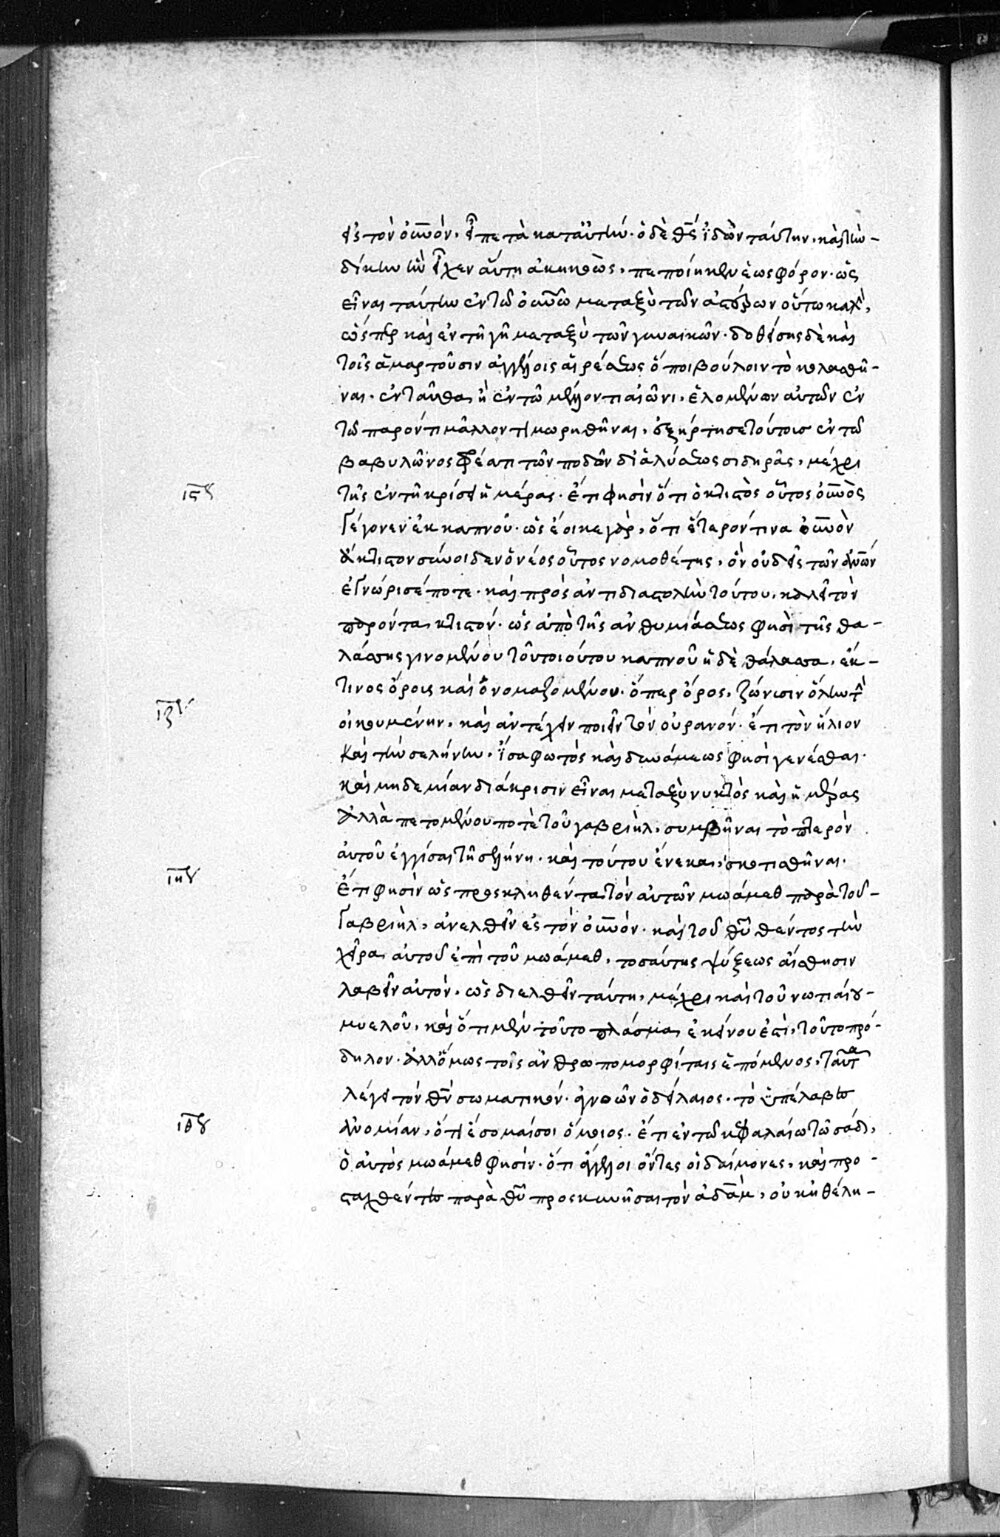 εἰς τὸν οὐνὸν, εἶπε τὰ κατ' αὐτήν· ὁ δὲ θς ἰδὼν ταύτην, καὶ τὴν
δίκην ἣν εἶχεν αὕτη ἀκηκοὼς, πεποίηκεν ἑωσφόρον· ὡς
εἶναι ταύτην ἐν τῶ οὐνῶ μεταξὺ τῶν ἀστέρων οὕτω καλὴ,
ὥσπερ καὶ ἐν τῆ γῆ μεταξὺ τῶν γυναικῶν· δοθείσης δὲ καὶ
τοῖς ἁμαρτοῦσιν ἀγγέλοις αἱρέσεως ὅποι βούλοιντο κολασθῆ-
ναι· ἐνταῦθα ἢ ἐν τῶ μέλλοντι αἰῶνι, ἑλομένων αὐτῶν ἐν
τῶ παρόντι μᾶλλον τιμωρηθῆναι, ἐξήρτησε τούτους ἐν τῶ
βαβυλῶνος φρέατι τῶν ποδῶν δι' ἁλύσεως σιδηρᾶς, μέχρι
ιςον
τῆς ἐν τῆ κρίσει ἡμέρας· ἔτι φησὶν ὅτι ὁ κτιστὸς οὗτος οὐνὸς
γέγονεν ἐκ καπνοῦ· ὡς ἔοικε γὰρ, ὅτι ἕτερον τινὰ οὐνὸν
ἄκτιστον οἶδεν ὁ νέος οὗτος νομοθέτης, ὃν οὐδεὶς τῶν ἀνων
ἐγνώρισέ ποτε· καὶ πρὸς ἀντιδιαστολὴν τούτου, καλεῖ τὸν
παρόντα κτιστόν· ὡς ἀπὸ τῆς ἀναθυμιάσεως φησὶ τῆς θα-
λάσσης γινομένου τοῦ τοιούτου καπνοῦ ἡ δὲ θάλασσα, ἔκ
τινος ὄρους καὶ ὀνομαζομένου· ὅπερ ὄρος, ζώνισιν ὅλην τὴν
ιζον
οἰκουμένην, καὶ ἀντέχειν ποιεῖν τὸν οὐρανόν· ἔτι τὸν ἥλιον
καὶ τὴν σελήνην, ἴσα φωτὸς καὶ δυνάμεως φησὶ γενέσθαι·
καὶ μηδεμίαν διάκρισιν εἶναι μεταξὺ νυκτὸς καὶ ἡμέρας
ἀλλὰ πετομένου ποτὲ τοῦ γαβριὴλ, συμβῆναι τὸ πτερὸν
αὐτοῦ ἐγγίσαι τῆ σελήνη· καὶ τούτου ἕνεκα, σκοτισθῆναι·
ιηον
ἔτι φησὶν ὡς προσκληθέντα τὸν αὐτὸν μωάμεθ παρὰ τοῦ
γαβριὴλ, ἀνελθεῖν εἰς τὸν οὐνόν· καὶ τοῦ θυ θέντος τὴν
χεῖρα αὐτοῦ ἐπὶ τοῦ μωάμεθ, τοσαύτης ψύξεως αἴσθησιν
λαβεῖν αὐτὸν, ὡς διελθεῖν ταύτη, μέχρι καὶ τοῦ νωτιαίου
μυελοῦ, καὶ ὅτι μὲν τοῦτο πλάσμα ἐκείνου ἐστὶ, τοῦτο πρό-
δηλον· ἀλλ' ὅμως τοῖς ἀνθρωπομορφίταις ἑπόμενος, ταῦτα
λέγει τὸν θν σωματικόν· ἀγνοῶν ὁ δείλαιος· τὸ ὑπέλαβες
ιθον
ἀνομίαν, ὅτι ἔσομαί σοι ὅμοιος· ἔτι ἐν τῶ κεφαλαίω τῶ σάδ,
ὁ αὐτὸς μωάμεθ φησὶν· ὅτι ἄγγελοι ὄντες οἱ δαίμονες, καὶ προ-
σταχθέντες παρὰ θυ προσκυνῆσαι τὸν ἀδὰμ, οὐκ ἠθέλη-